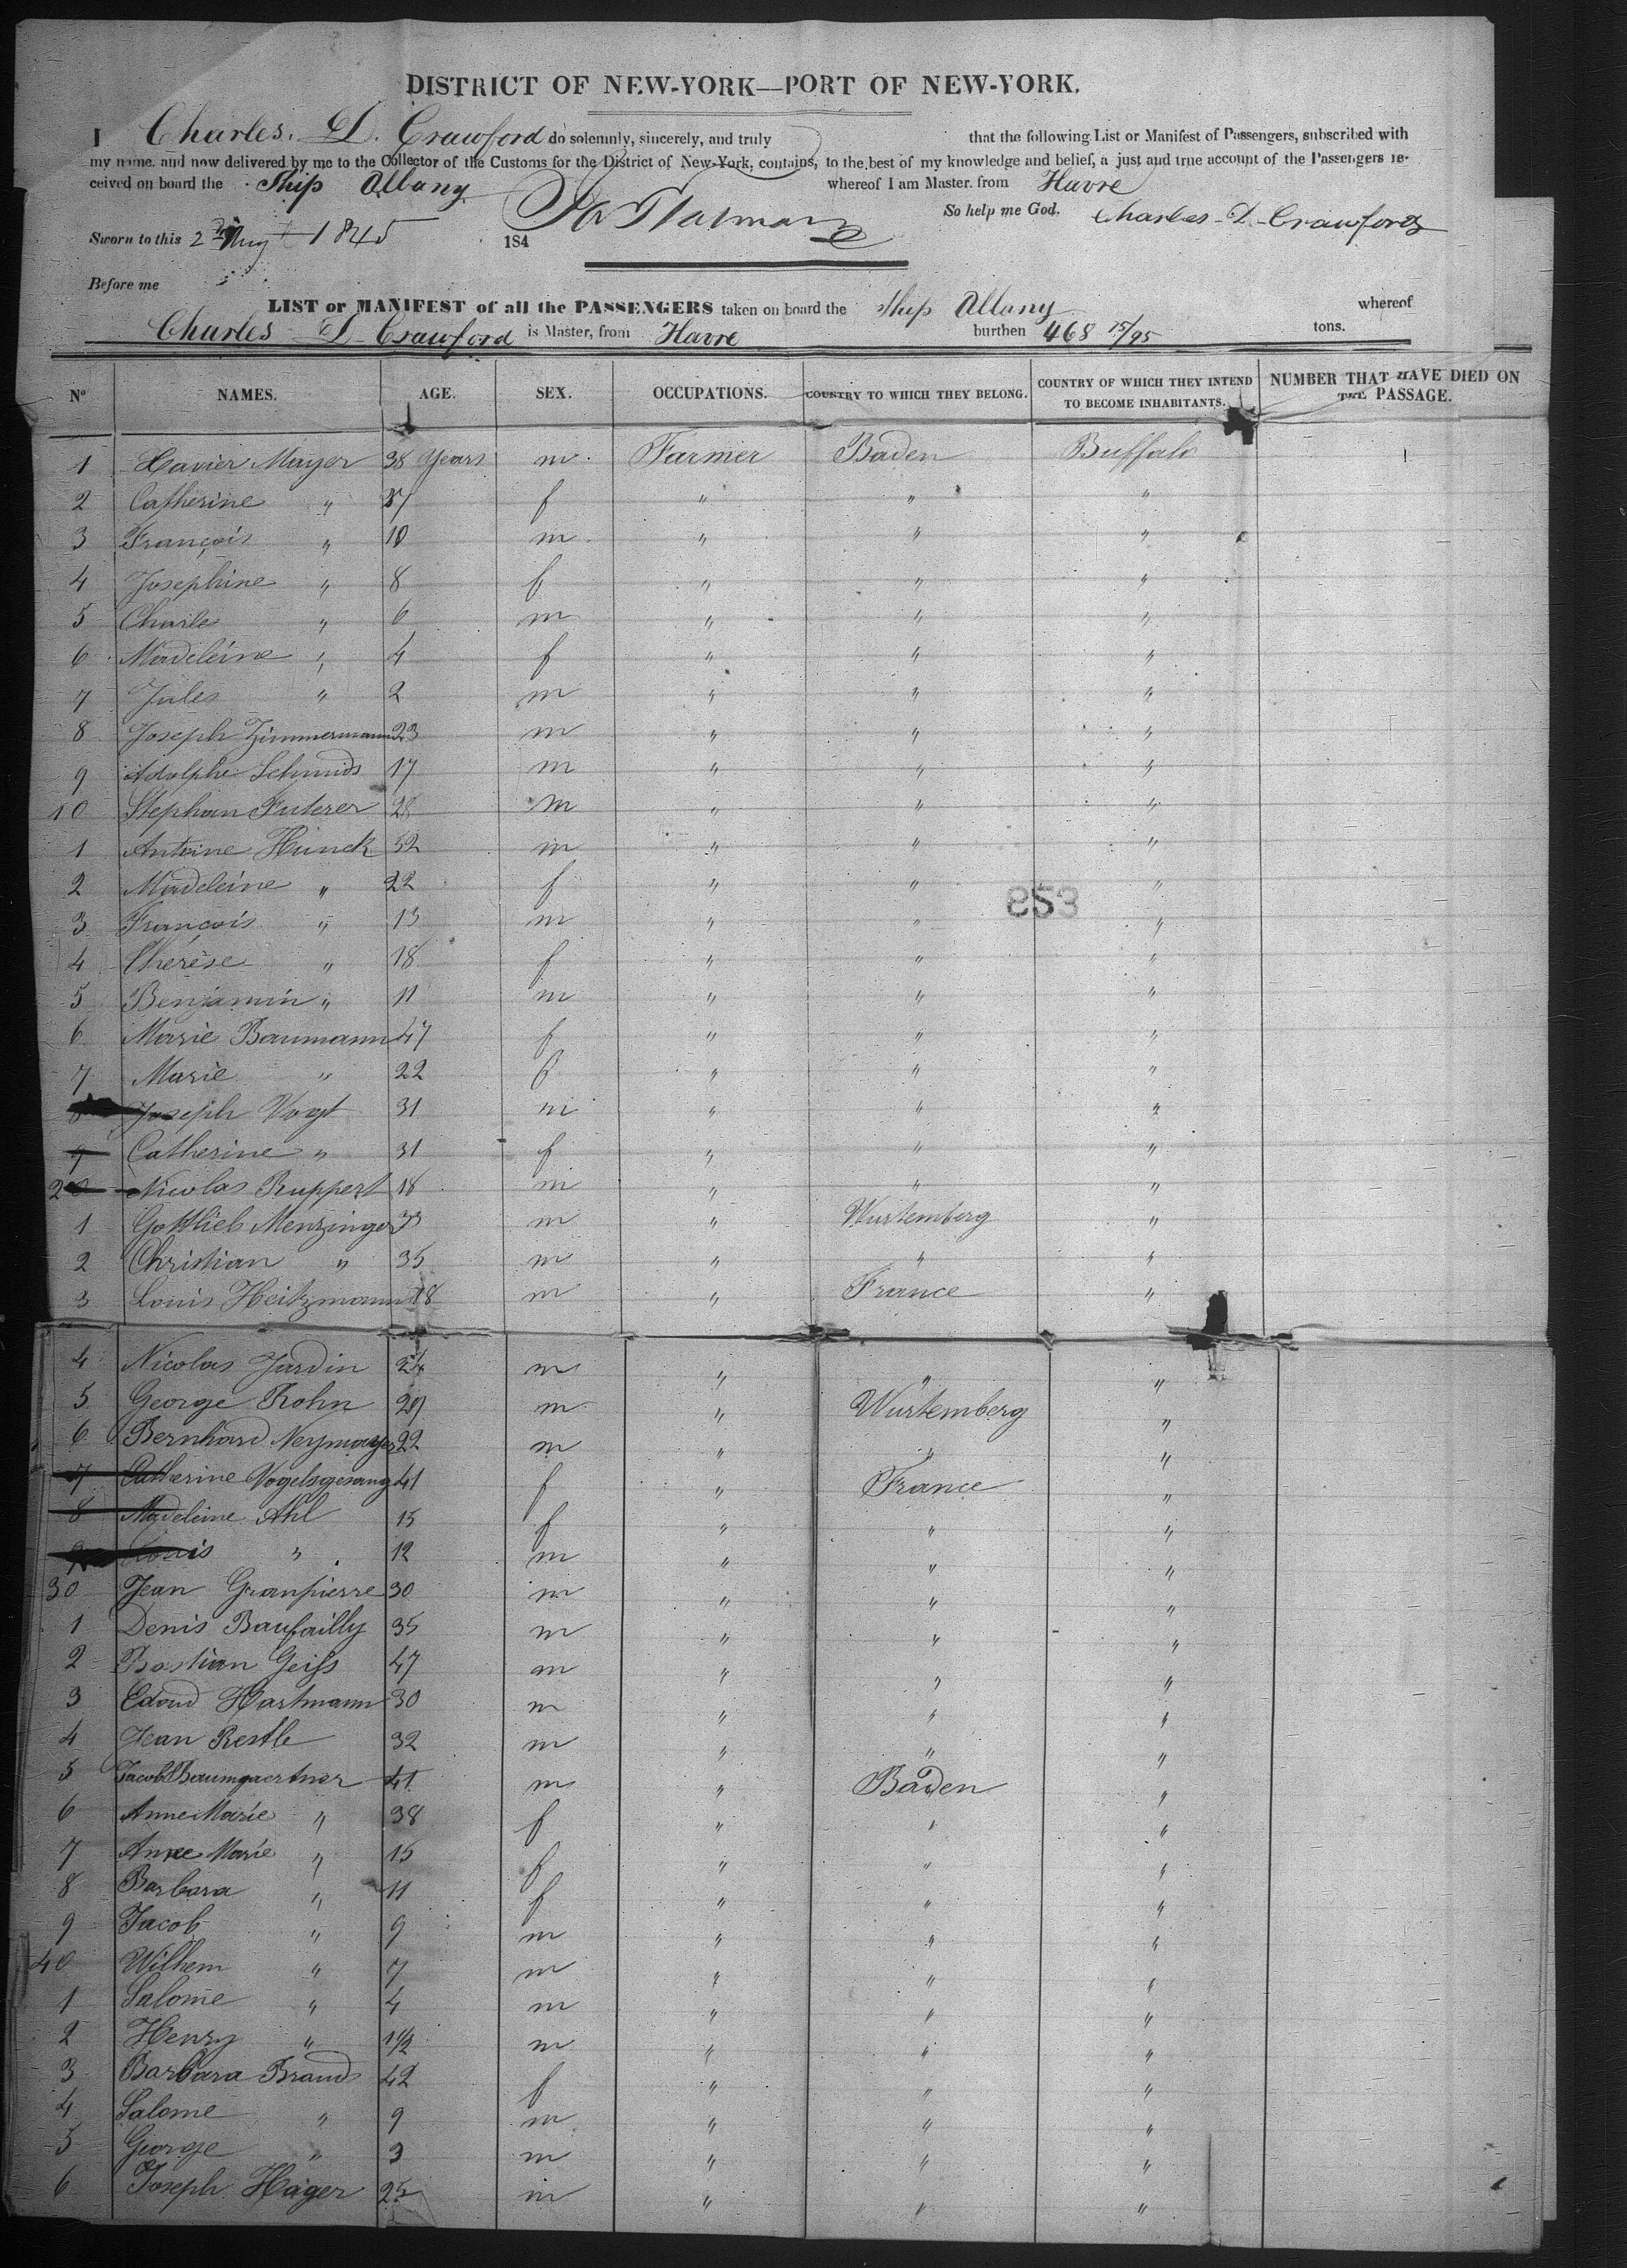 DISTRICT OF NEW-YORK—PORT OF NEW-YORK.
I Charles. D. Crawford do solemnly, sincerely, and truly that the following List or Manifest of Passengers, subscribed with
my name. and now delivered by me to the Collector of the Customs for the District of New-York, contains, to the best of my knowledge and belief, a just and true account of the Passengers re-
ceived on board the Ship Albany whereof I am Master. from Havre
So help me God. Charles D. Crawford
Sworn to this 2 Aug 1845 184
Before me
LIST or MANIFEST of all the PASSENGERS taken on board the Ship Albany whereof
Charles D Crawford is Master, from Havre burthen 468 75/95 tons.
No NAMES. AGE. SEX. OCCUPATIONS. COUNTRY TO WHICH THEY BELONG. COUNTRY OF WHICH THEY INTEND TO BECOME INHABITANTS. NUMBER THAT HAVE DIED ON THE PASSAGE.
1 Xavier Mayer 38 Years m Farmer Baden Buffalo
2 Catherine " 37 f " " "
3 François " 10 m " " "
4 Josephine " 8 f " " "
5 Charle " 6 m " " "
6 Madeleine " 4 f " " "
7 Jules " 2 m " " "
8 Joseph Zimmermann 23 m " " "
9 Adolphe Schmids 17 m " " "
10 Stephan Futerer 28 m " " "
1 Antoine Hunck 52 m " " "
2 Madeleine " 22 f " " "
853
3 François " 13 m " " "
4 Cherèse " 18 f " " "
5 Benjamin " 11 m " " "
6 Marie Baumann 47 f " " "
7 Marie " 22 f " " "
8 Joseph Vogt 31 m " " "
9 Catherine " 31 f " " "
20 Nicolas Ruppert 18 m " " "
1 Gottlieb Menzinger 33 m " Wurtemberg "
2 Christian " 35 m " " "
3 Louis Heitzmann 18 m " France "
4 Nicolas Jardin 24 m " " "
5 George Rohn 29 m " Wurtemberg "
6 Bernhard Neymayer 22 m " " "
7 Catherine Vogelsgesang 41 f " France "
8 Madeleine Ahl 15 f " " "
9 Louis " 12 m " " "
30 Jean Granpierre 30 m " " "
1 Denis Baufailly 35 m " " "
2 Bastian Geiss 47 m " " "
3 Edoud Hartmann 30 m " " "
4 Jean Restle 32 m " " "
5 Jacob Baumgaertner 41 m " Baden "
6 Anne Marie " 38 f " " "
7 Anne Marie " 15 f " " "
8 Barbara " 11 f " " "
9 Jacob " 9 m " " "
40 Wilhem " 7 m " " "
1 Salome " 4 m " " "
2 Henry " 1 1/2 m " " "
3 Barbara Brand 42 f " " "
4 Salome " 9 m " " "
5 George " 3 m " " "
6 Joseph Hager 25 m " " "